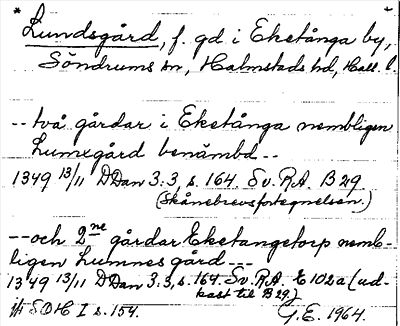 * Lundsgård, f. gd i Eketånga by,
Söndrums sn, Halmstads hd, Hall. l.
-- två gårdar i Eketånga nembligen
Lumxgård benämbd --
1349 13/11 DDan 3:3, s. 164. Sv. R.A. B 29
(Skånebrevsfortegnelsen.)
-- och 2ne gårdar Eketangetorp nemb-
ligen Lumnes gård ---
1349 13/11 DDan 3:3, s. 164. Sv. R.A. E 102a (ud-
kast til B 29)
SOH I s. 154. G.E. 1964.